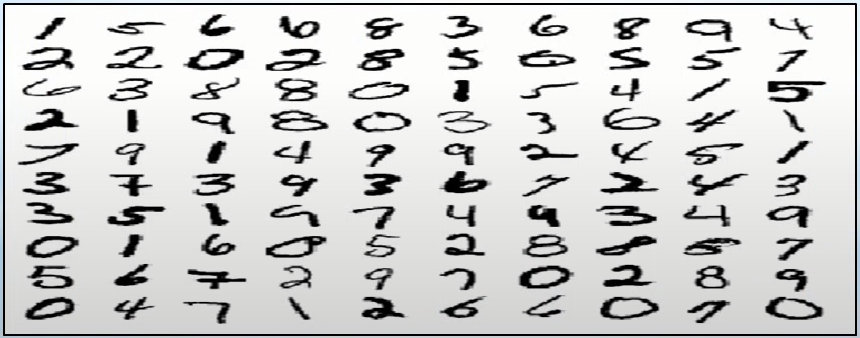 1 5 6 6 8 3 6 8 9 4
2 2 0 2 8 5 6 5 5 7
6 3 8 8 0 1 5 4 1 5
2 1 9 8 0 3 3 6 4 1
7 9 1 4 9 9 2 4 5 1
3 7 3 9 3 6 7 2 4 3
3 5 1 9 7 4 9 3 4 9
0 1 6 0 5 2 8 8 8 7
5 6 7 2 9 7 0 2 8 9
0 4 7 1 2 6 6 0 7 0